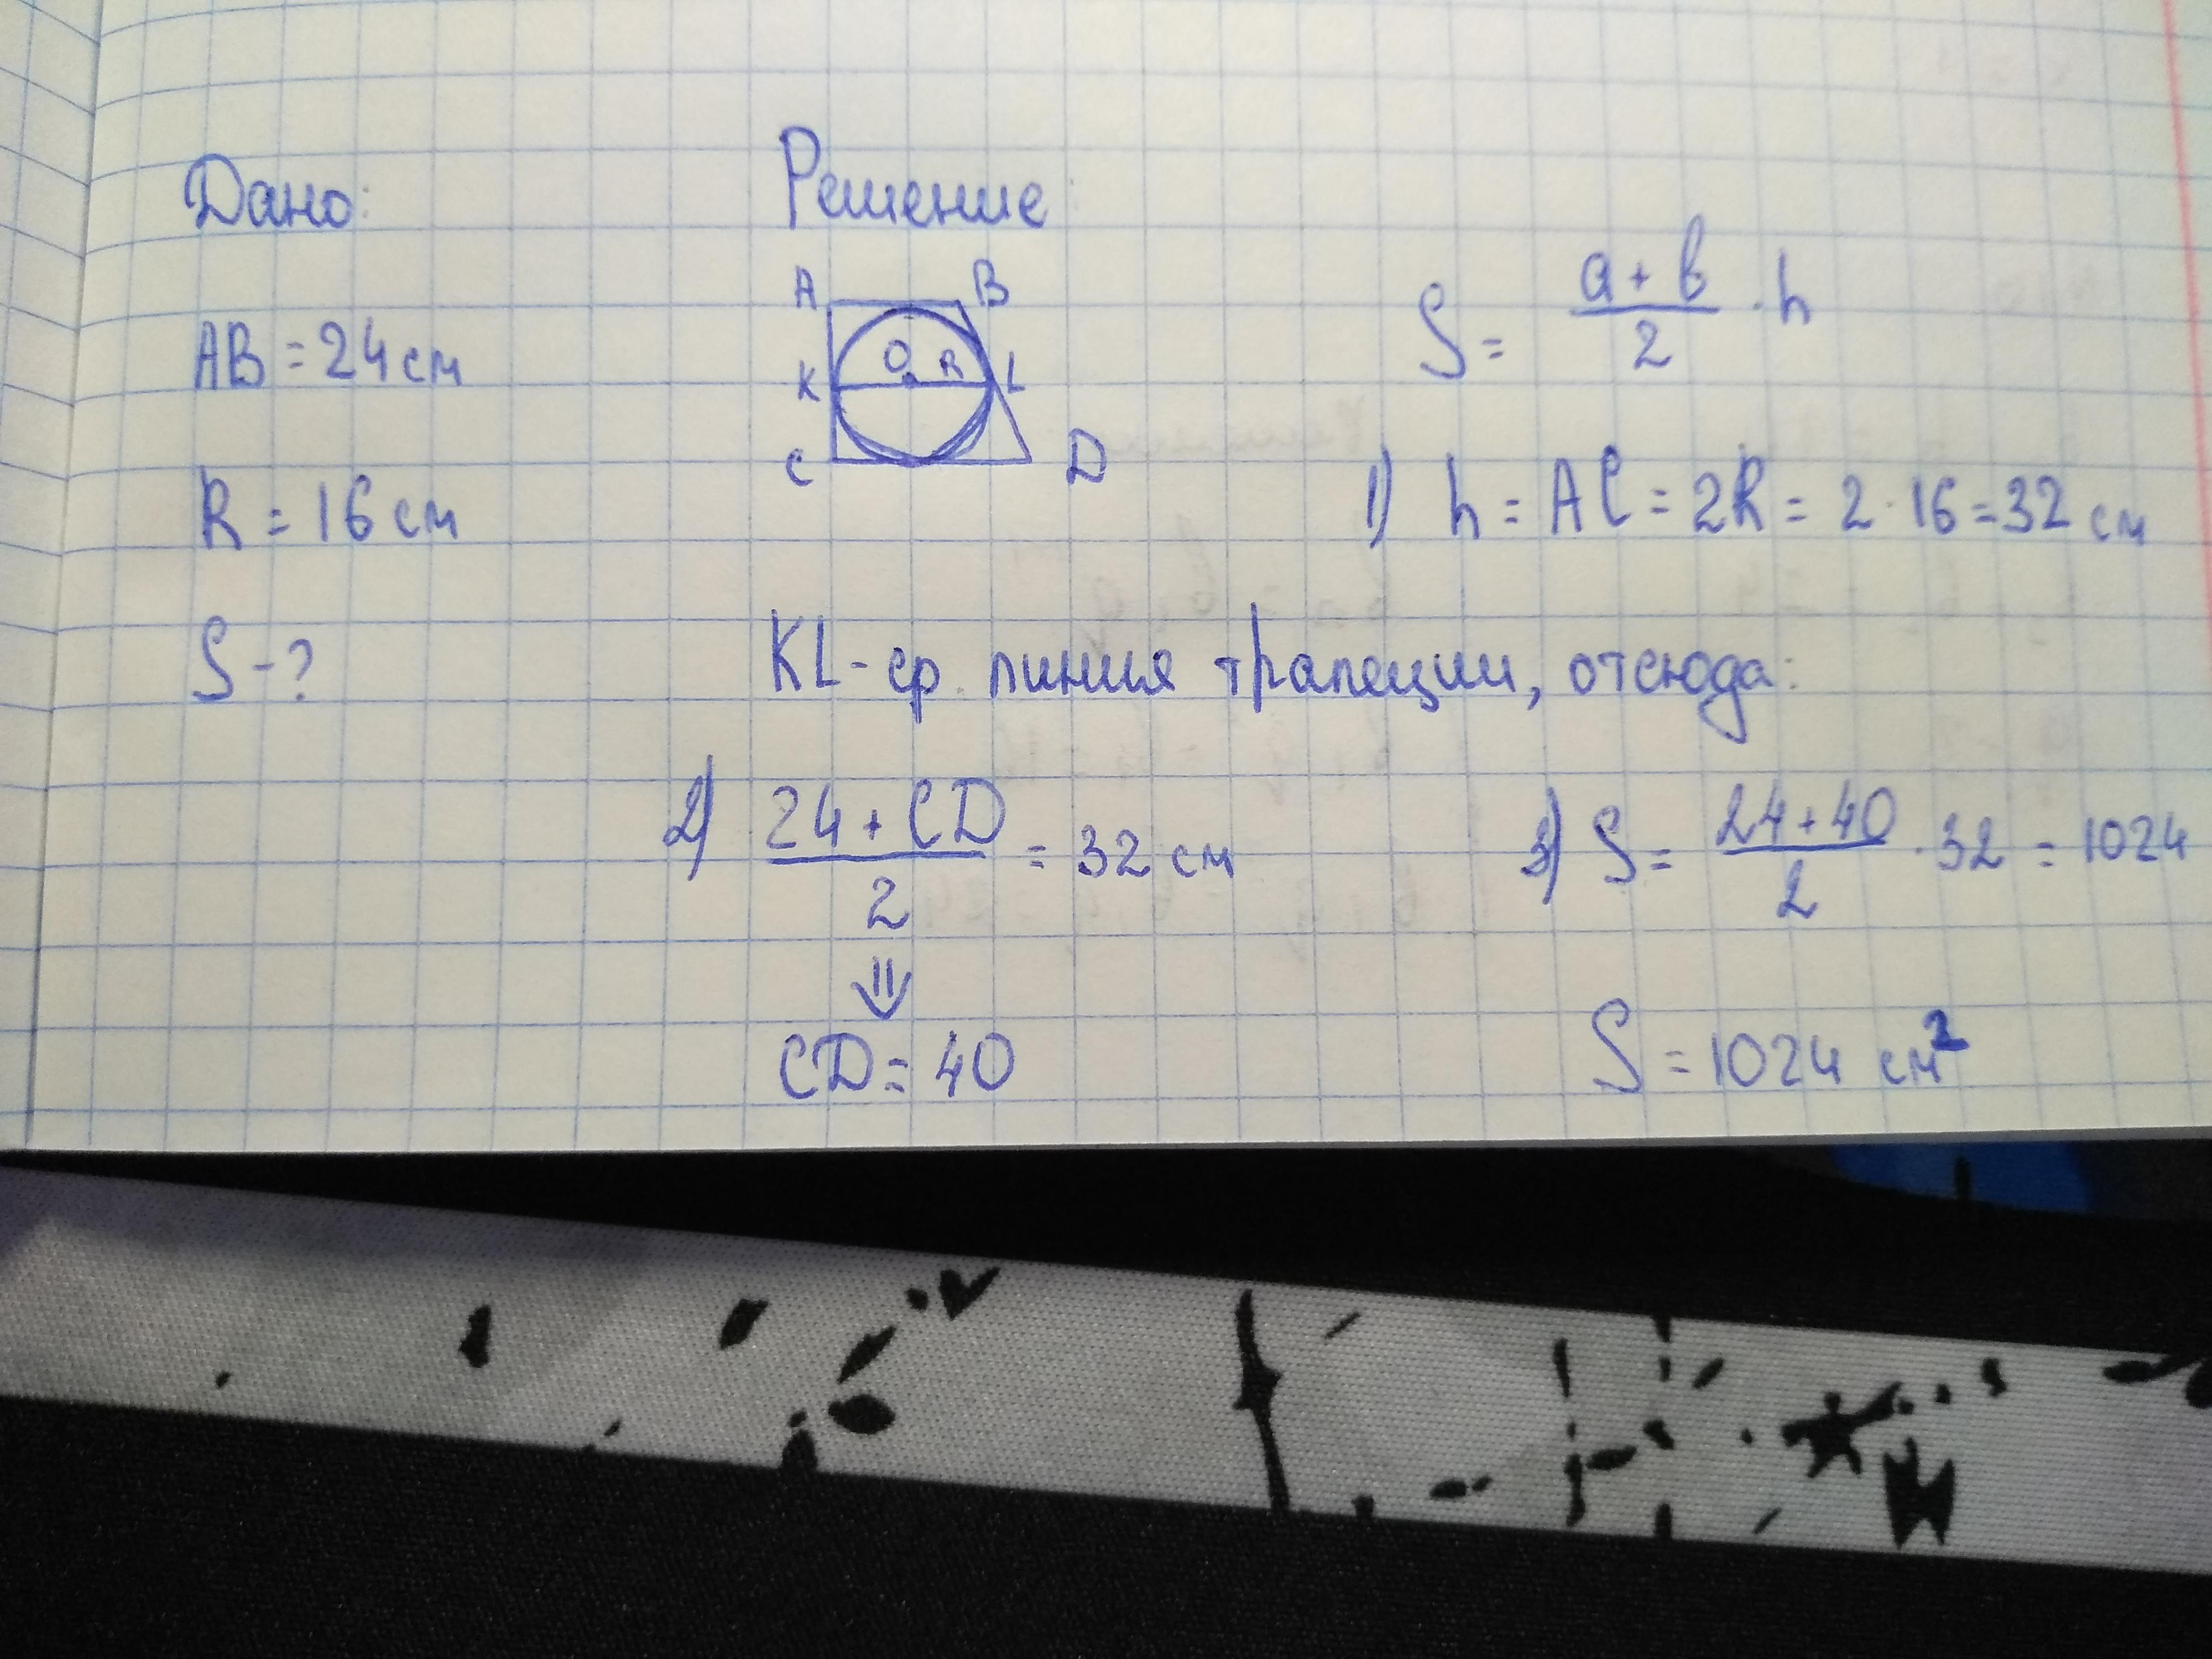 Дано:
AB = 24 см
R = 16 см
S - ?
Решение
A B
O R
K L
C D
S = (a + b)/2 · h
1) h = AC = 2R = 2 · 16 = 32 см
KL - ср. линия трапеции, отсюда:
2) (24 + CD)/2 = 32 см
⇓
CD = 40
3) S = (24 + 40)/2 · 32 = 1024
S = 1024 см²